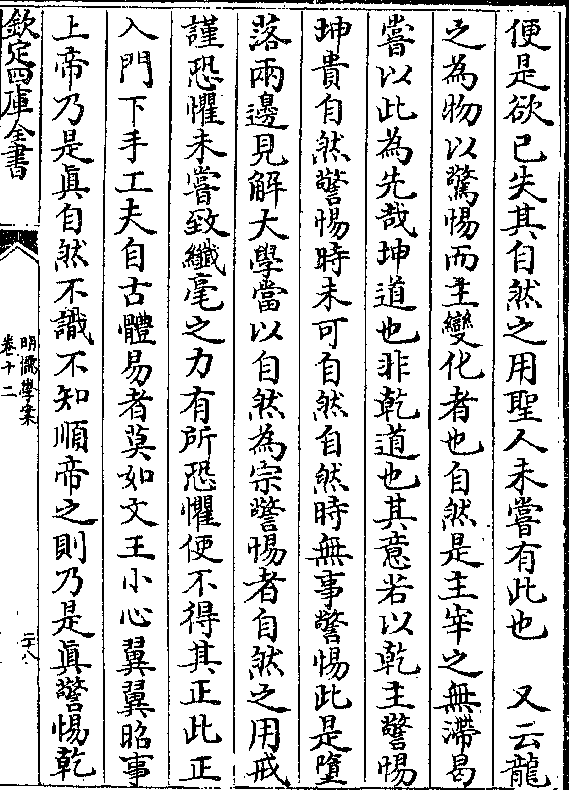 便是欲已失其自然之用聖人未嘗有此也　又云龍
之為物以驚惕而主變化者也自然是主宰之無滯曷
嘗以此為先哉坤道也非乾道也其意若以乾主警惕
坤貴自然警惕時未可自然自然時無事警惕此是墮
落兩邊見解大學當以自然為宗警惕者自然之用戒
謹恐懼未嘗致纖毫之力有所恐懼便不得其正此正
入門下手工夫自古體易者莫如文王小心翼翼昭事
上帝乃是眞自然不識不知順帝之則乃是眞警惕乾
欽定四庫全書
明儒學案
卷十二
二十八